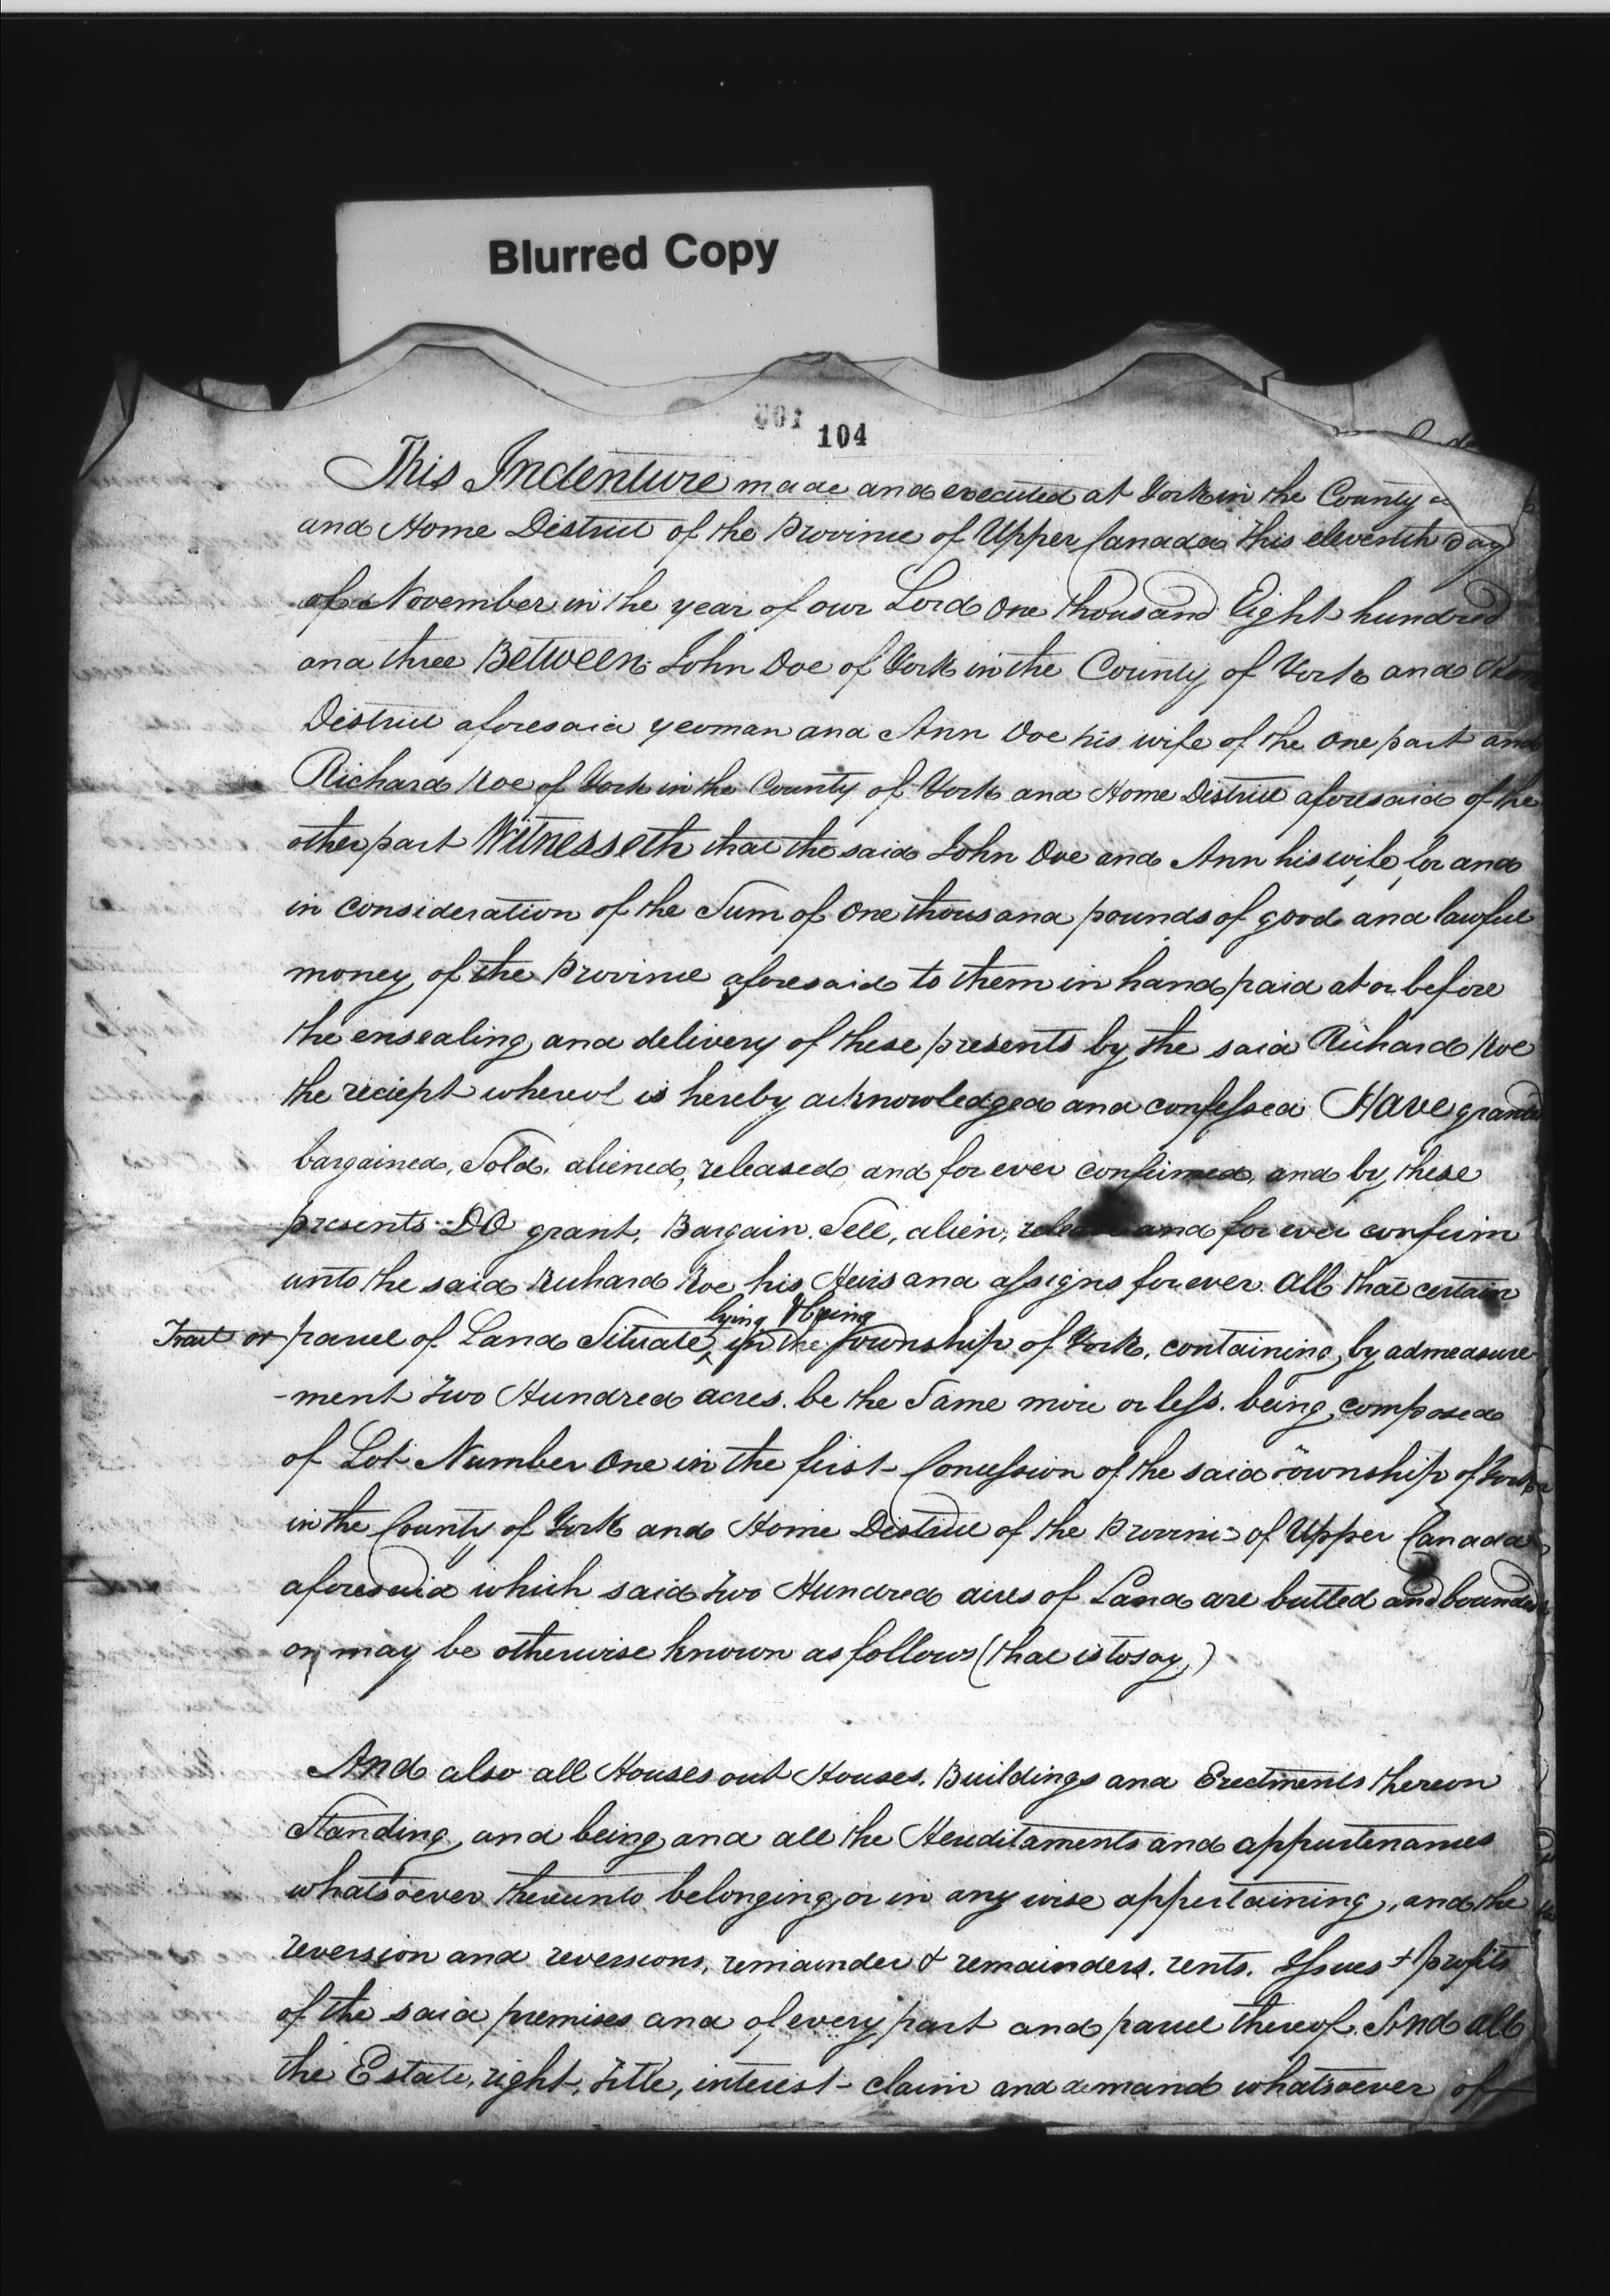 Blurred Copy
104
This Indenture made and executed at York in the County
and Home District of the Province of Upper Canada this eleventh day
of November in the year of our Lord One thousand Eight hundred
and three Between John Doe of York in the County of York and Home
District aforesaid yeoman and Ann Doe his wife of the one part and
Richard Roe of York in the County of York and Home District aforesaid of the
other part Witnesseth that the said John Doe and Ann his wife for and
in consideration of the Sum of One thousand pounds of good and lawful
money of the Province aforesaid to them in hand paid at or before
the ensealing and delivery of these presents by the said Richard Roe
the reciept whereof is hereby acknowledged and confessed Have granted
bargained, Sold, aliened, released and for ever confirmed, and by these
presents DO grant, Bargain, Sell, alien, release and for ever confirm
unto the said Richard Roe his Heirs and assigns for ever All that certain
lying & being
Tract or parcel of Land Situate in the Township of York, containing by admeasure-
-ment Two Hundred acres. be the Same more or less. being composed
of Lot Number One in the first Concession of the said Township of York
in the County of York and Home District of the Province of Upper Canada
aforesaid which said Two Hundred acres of Land are butted and bounded
or may be otherwise known as follows (that is to say,)
And also all Houses out Houses, Buildings and Erectments thereon
Standing and being and all the Hereditaments and appurtenances
whatsoever thereunto belonging or in any wise appertaining, and the
reversion and reversions, remainder & remainders, rents, Issues & profits
of the said premises and of every part and parcel thereof. And all
the Estate, right, Title, interest claim and demand whatsoever of